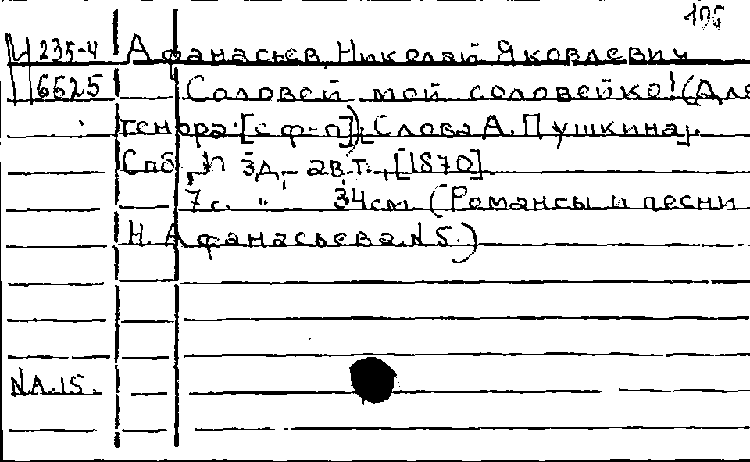 105
М 235-4 Афанасьев, Николай Яковлевич
6625 Соловей мой соловейко! (Для
тенора [с ф-п]). Слова А. Пушкина.
Спб., изд. авт., [1870].
7 с. 34 см (Романсы и песни
Н. Афанасьева. N 5.)
N А. 15.